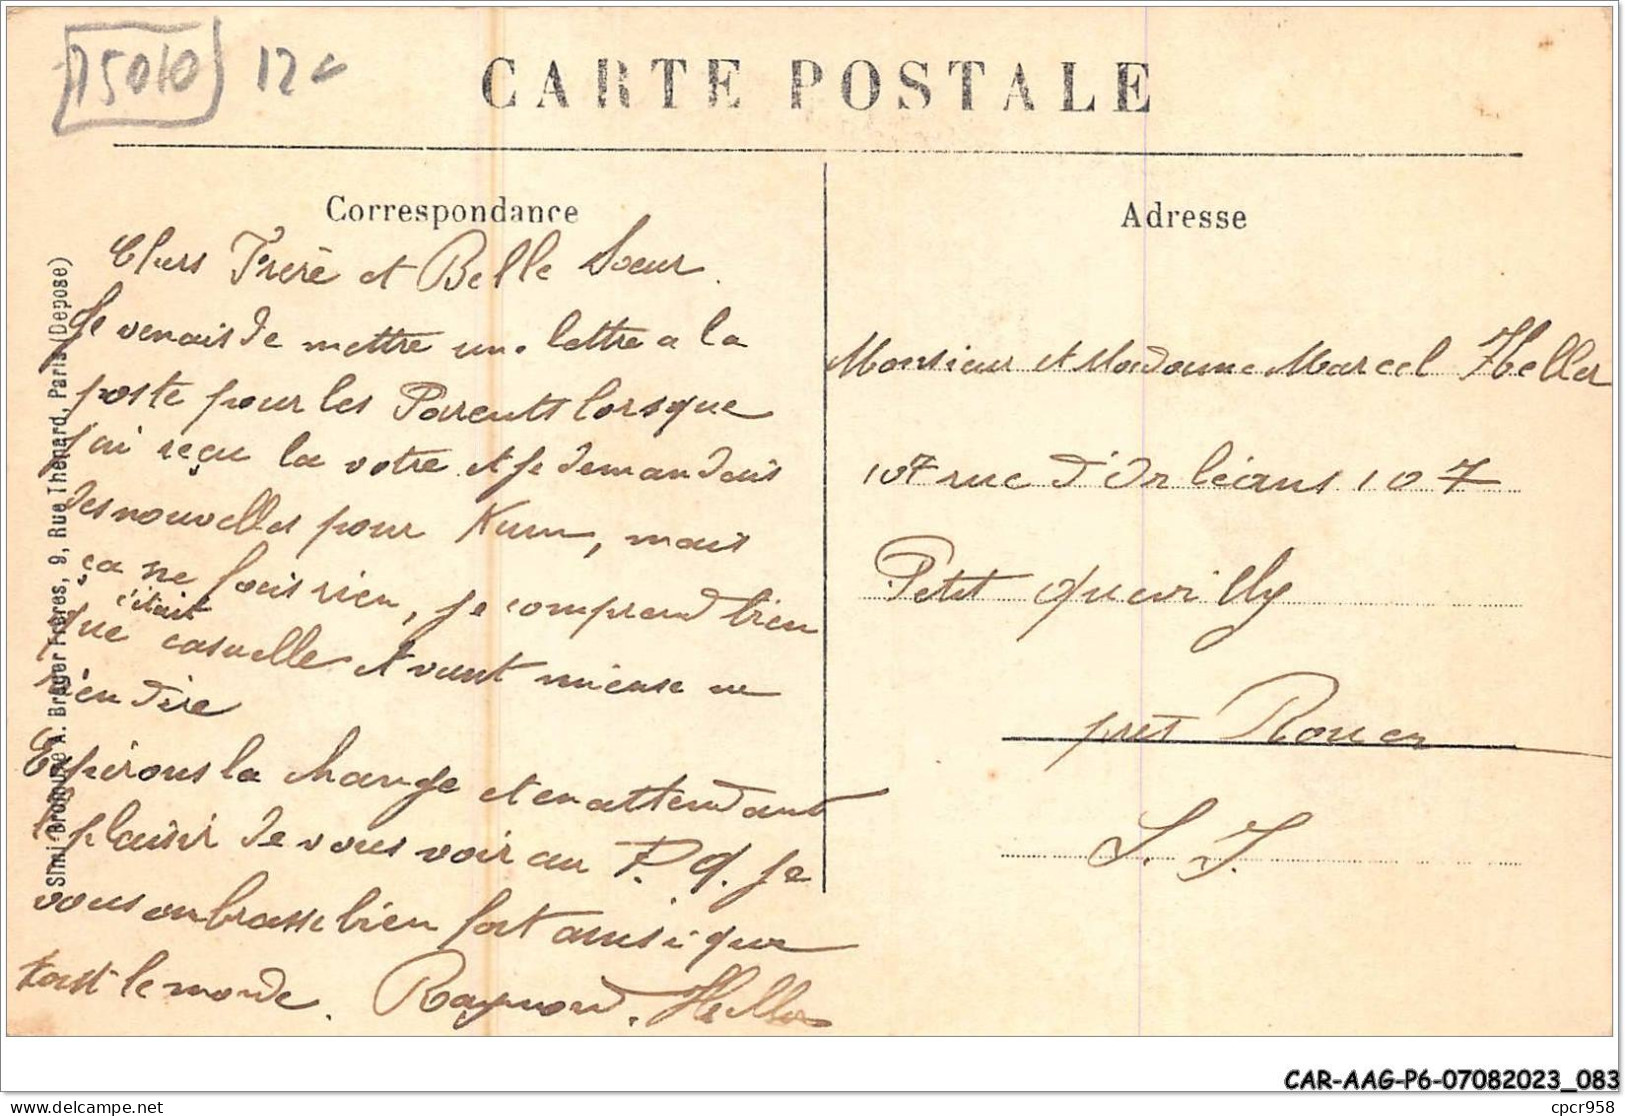 75010 12
CARTE POSTALE
Correspondance
Adresse
Simi-Bromure A. Breger Frères, 9, Rue Thénard, Paris (Déposé)
Chers Frère et Belle Soeur.
Je venais de mettre une lettre a la
poste pour les Parents lorsque
j'ai reçu la votre et je demandais
des nouvelles pour mais
ça ne fais rien, je comprend bien
que c'était casuelle et vaut mieux ne
rien dire
Espérons la change et en attendant
le plaisir de vous voir au P. Q. je
vous embrasse bien fort ainsi que
tout le monde. Raymond. Heller
Monsieur et Madame Marcel Heller
107 rue d'Orléans 107
Petit Quevilly
près Rouen
S. I.
CAR-AAG-P6-07082023_083
delcampe.net
cpcr958